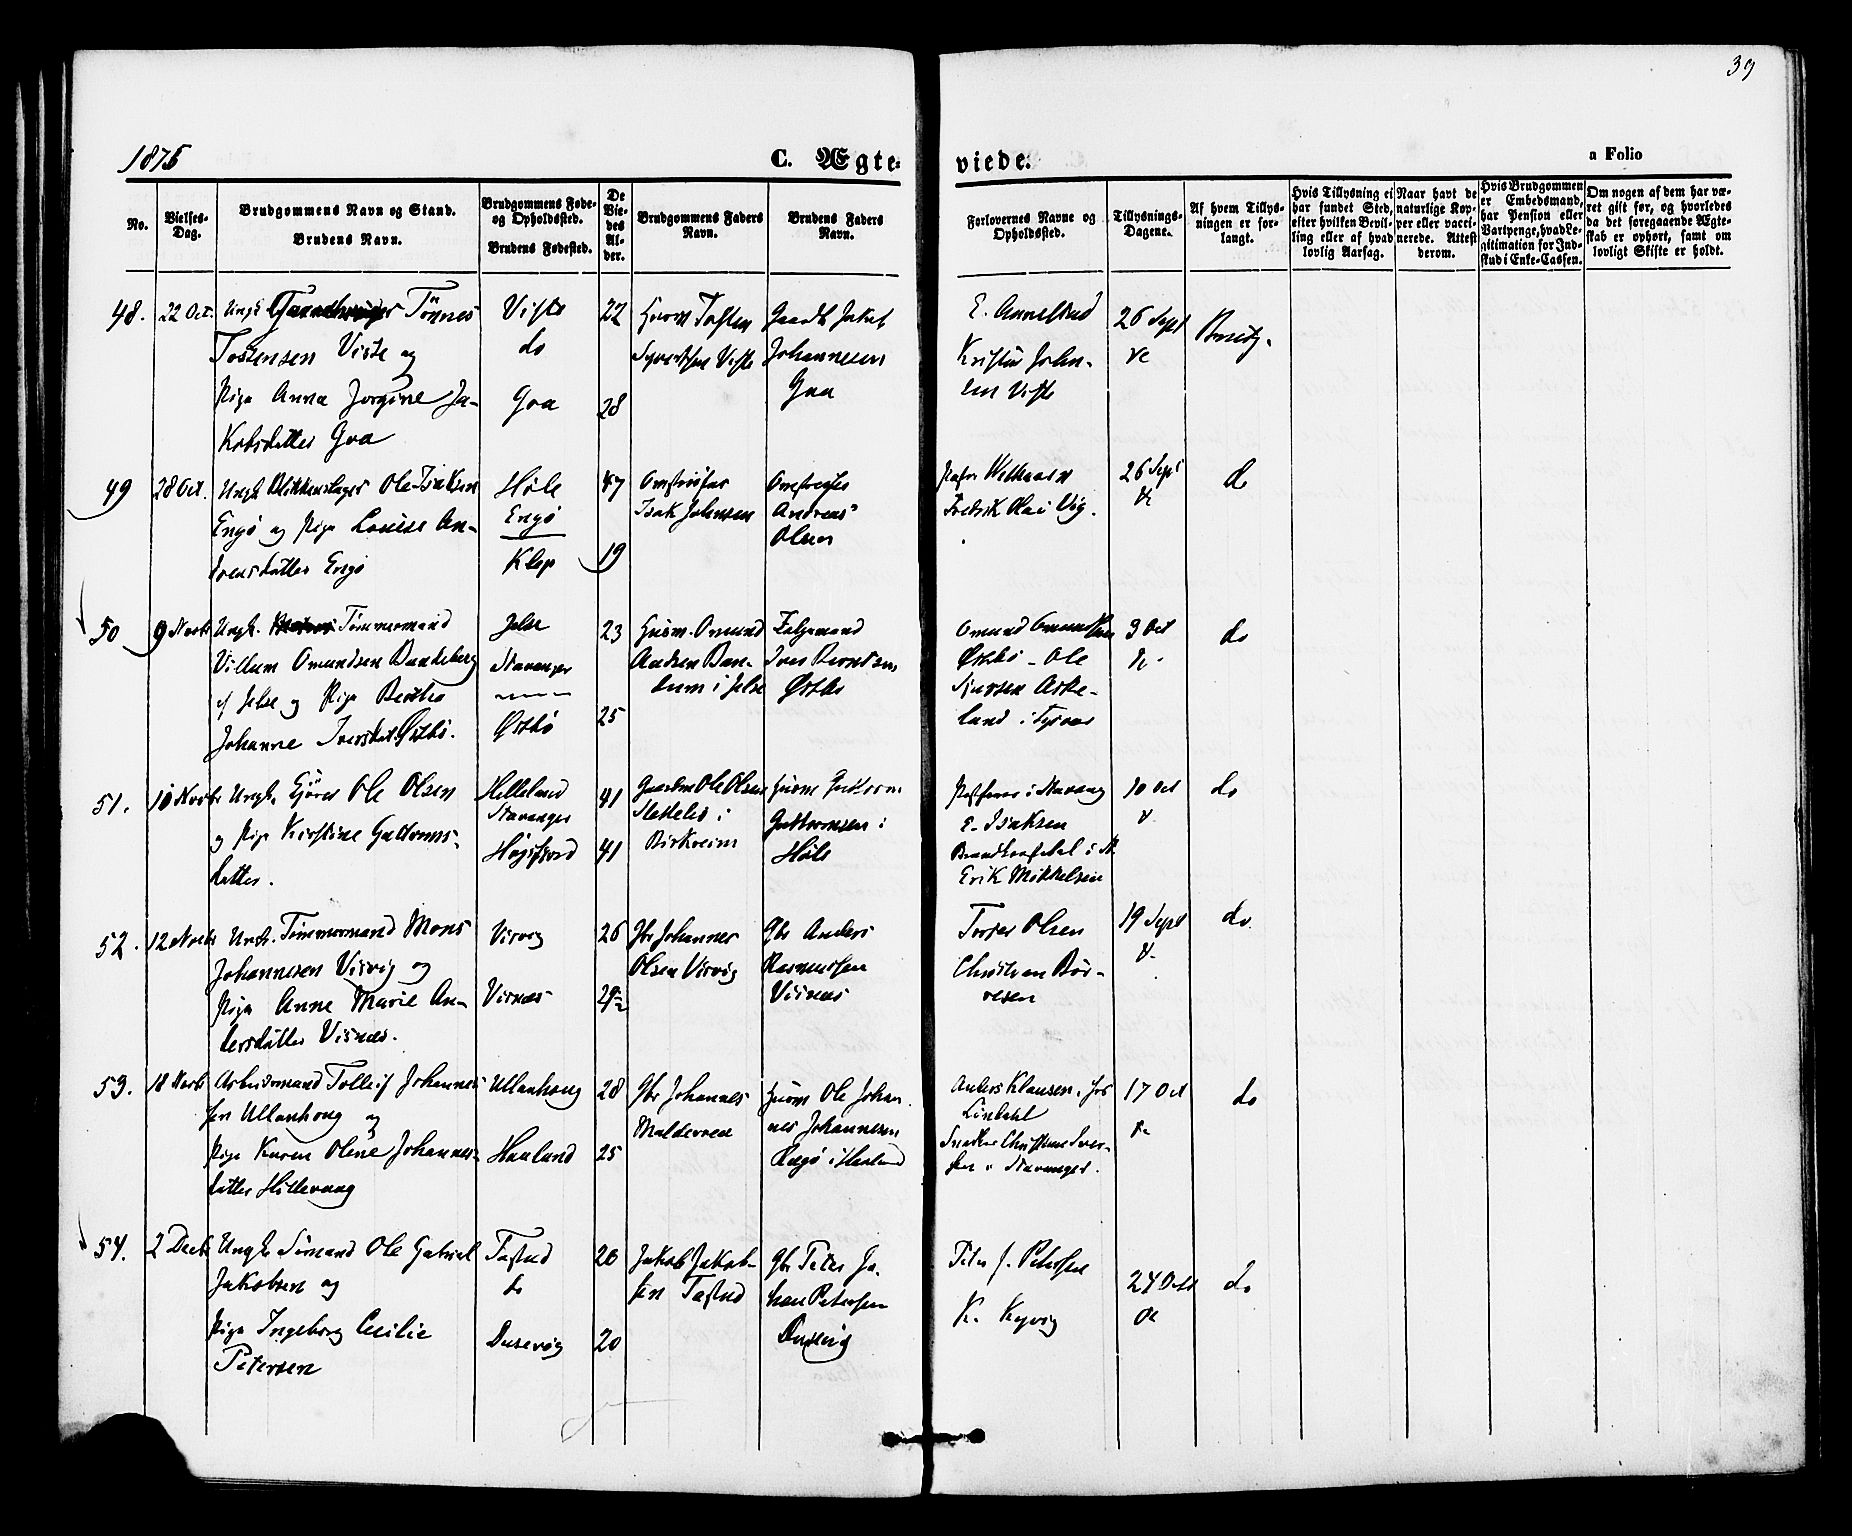 39
1875
C. Ægte- viede.
a Folio
No.
Vielses-Dag.
Brudgommens Navn og Stand.
Brudens Navn.
Brudgommens Føde- og Opholdssted.
Brudens Fødested.
De Viedes Alder.
Brudgommens Faders Navn.
Brudens Faders Navn.
Forlovernes Navne og Opholdssted.
Tillysnings-Dagene.
Af hvem Tillysningen er forlangt.
Hvis Tillysning ei har fundet Sted, efter hvilken Bevilling eller af hvad lovlig Aarsag.
Naar havt de naturlige Kopper eller vaccinerede. Attest derom.
Hvis Brudgommen er Embedsmand, har Pension eller Vartpenge, hvad Legitimation for Indskud i Enke-Cassen.
Om nogen af dem har været gift før, og hvorledes da det foregaaende Ægteskab er ophørt, samt om lovligt Skifte er holdt.
48.
22 Oct.
Ungk. Tönnes
Tostensen Viste og
Pige Anna Jorgine Ja-
kobsdatter Goa
Viste
do
Goa
22
28
Husm Tosten
Syvertsen Viste
Gaardb Jakob
Johannesen
Goa
E. Annestad
Kristian John-
sen Viste
26 Sept
49
28 Oct.
Ungk Blikkenslager Ole Isaksen
Engö og Pige Louise An-
dreasdatter Engö
Höle
Engö
Klep
47
19
Isak Johnsen
Andreas
Olsen
Fredrik Olai Vig.
26 Sept
do
50
9 Novb
Ungk. Tömmermand
Villum Omundsen Bandeberg
af Jelse og Pige Bertha
Johanne Iversdat. Østbö.
Jelse
Stavanger
Østbö
23
25
Husm. Omund
Andsen Ban-
deberg i Jelse
Iver Berntsen
Østbö
Omund Omundsen
Østbö - Ole
Sjursen Aske-
land i Tysvær
3 Oct
do
51.
10 Novbr
Ungk. Ole Olsen
og Pige Kirstine Guttorms-
datter.
Helleland
Stavanger
Högsfjord
41
41
Ole Olsen
i
Birkreim
Husm Guttorm
Guttormsen i
Höle
i Stavang
E. Isaksen
Erik Mikkelsen
10 Oct
do
52.
12 Novb
Ungk. Tömmermand Mons
Johannesen Visvig og
Pige Anne Marie An-
dersdatter Visnæs.
Visvig
Visnæs
26
Gbr Johannes
Olsen Visvig
Gbr Anders
Rasmussen
Visnæs
Torger Olsen
Christian Bör-
resen
19 Sept
do.
53.
18 Novb
Arbeidsmand Tolleif Johannes-
sen Ullanhoug og
Pige Karen Oline Johannes-
datter Hillevaag
Ullanhoug
Haaland
28
25
Gbr Johannes
Husm Ole Johan
nes Johannesen
i Haaland
Anders Klausen, hos
Lindahl
Snedker Christian Iver-
sen i Stavanger.
17 Oct
do
54.
2 Decb
Ungk Sömand Ole Gabriel
Jakobsen og
Pige Ingeborg Cecilie
Petersen
Tastad
do
Dusevig
20
20
Jakob Jakob-
sen Tastad
Gbr Peter Jo-
han Petersen
Dusevig
Peter J. Petersen
K. Kyvig
24 Octb
do